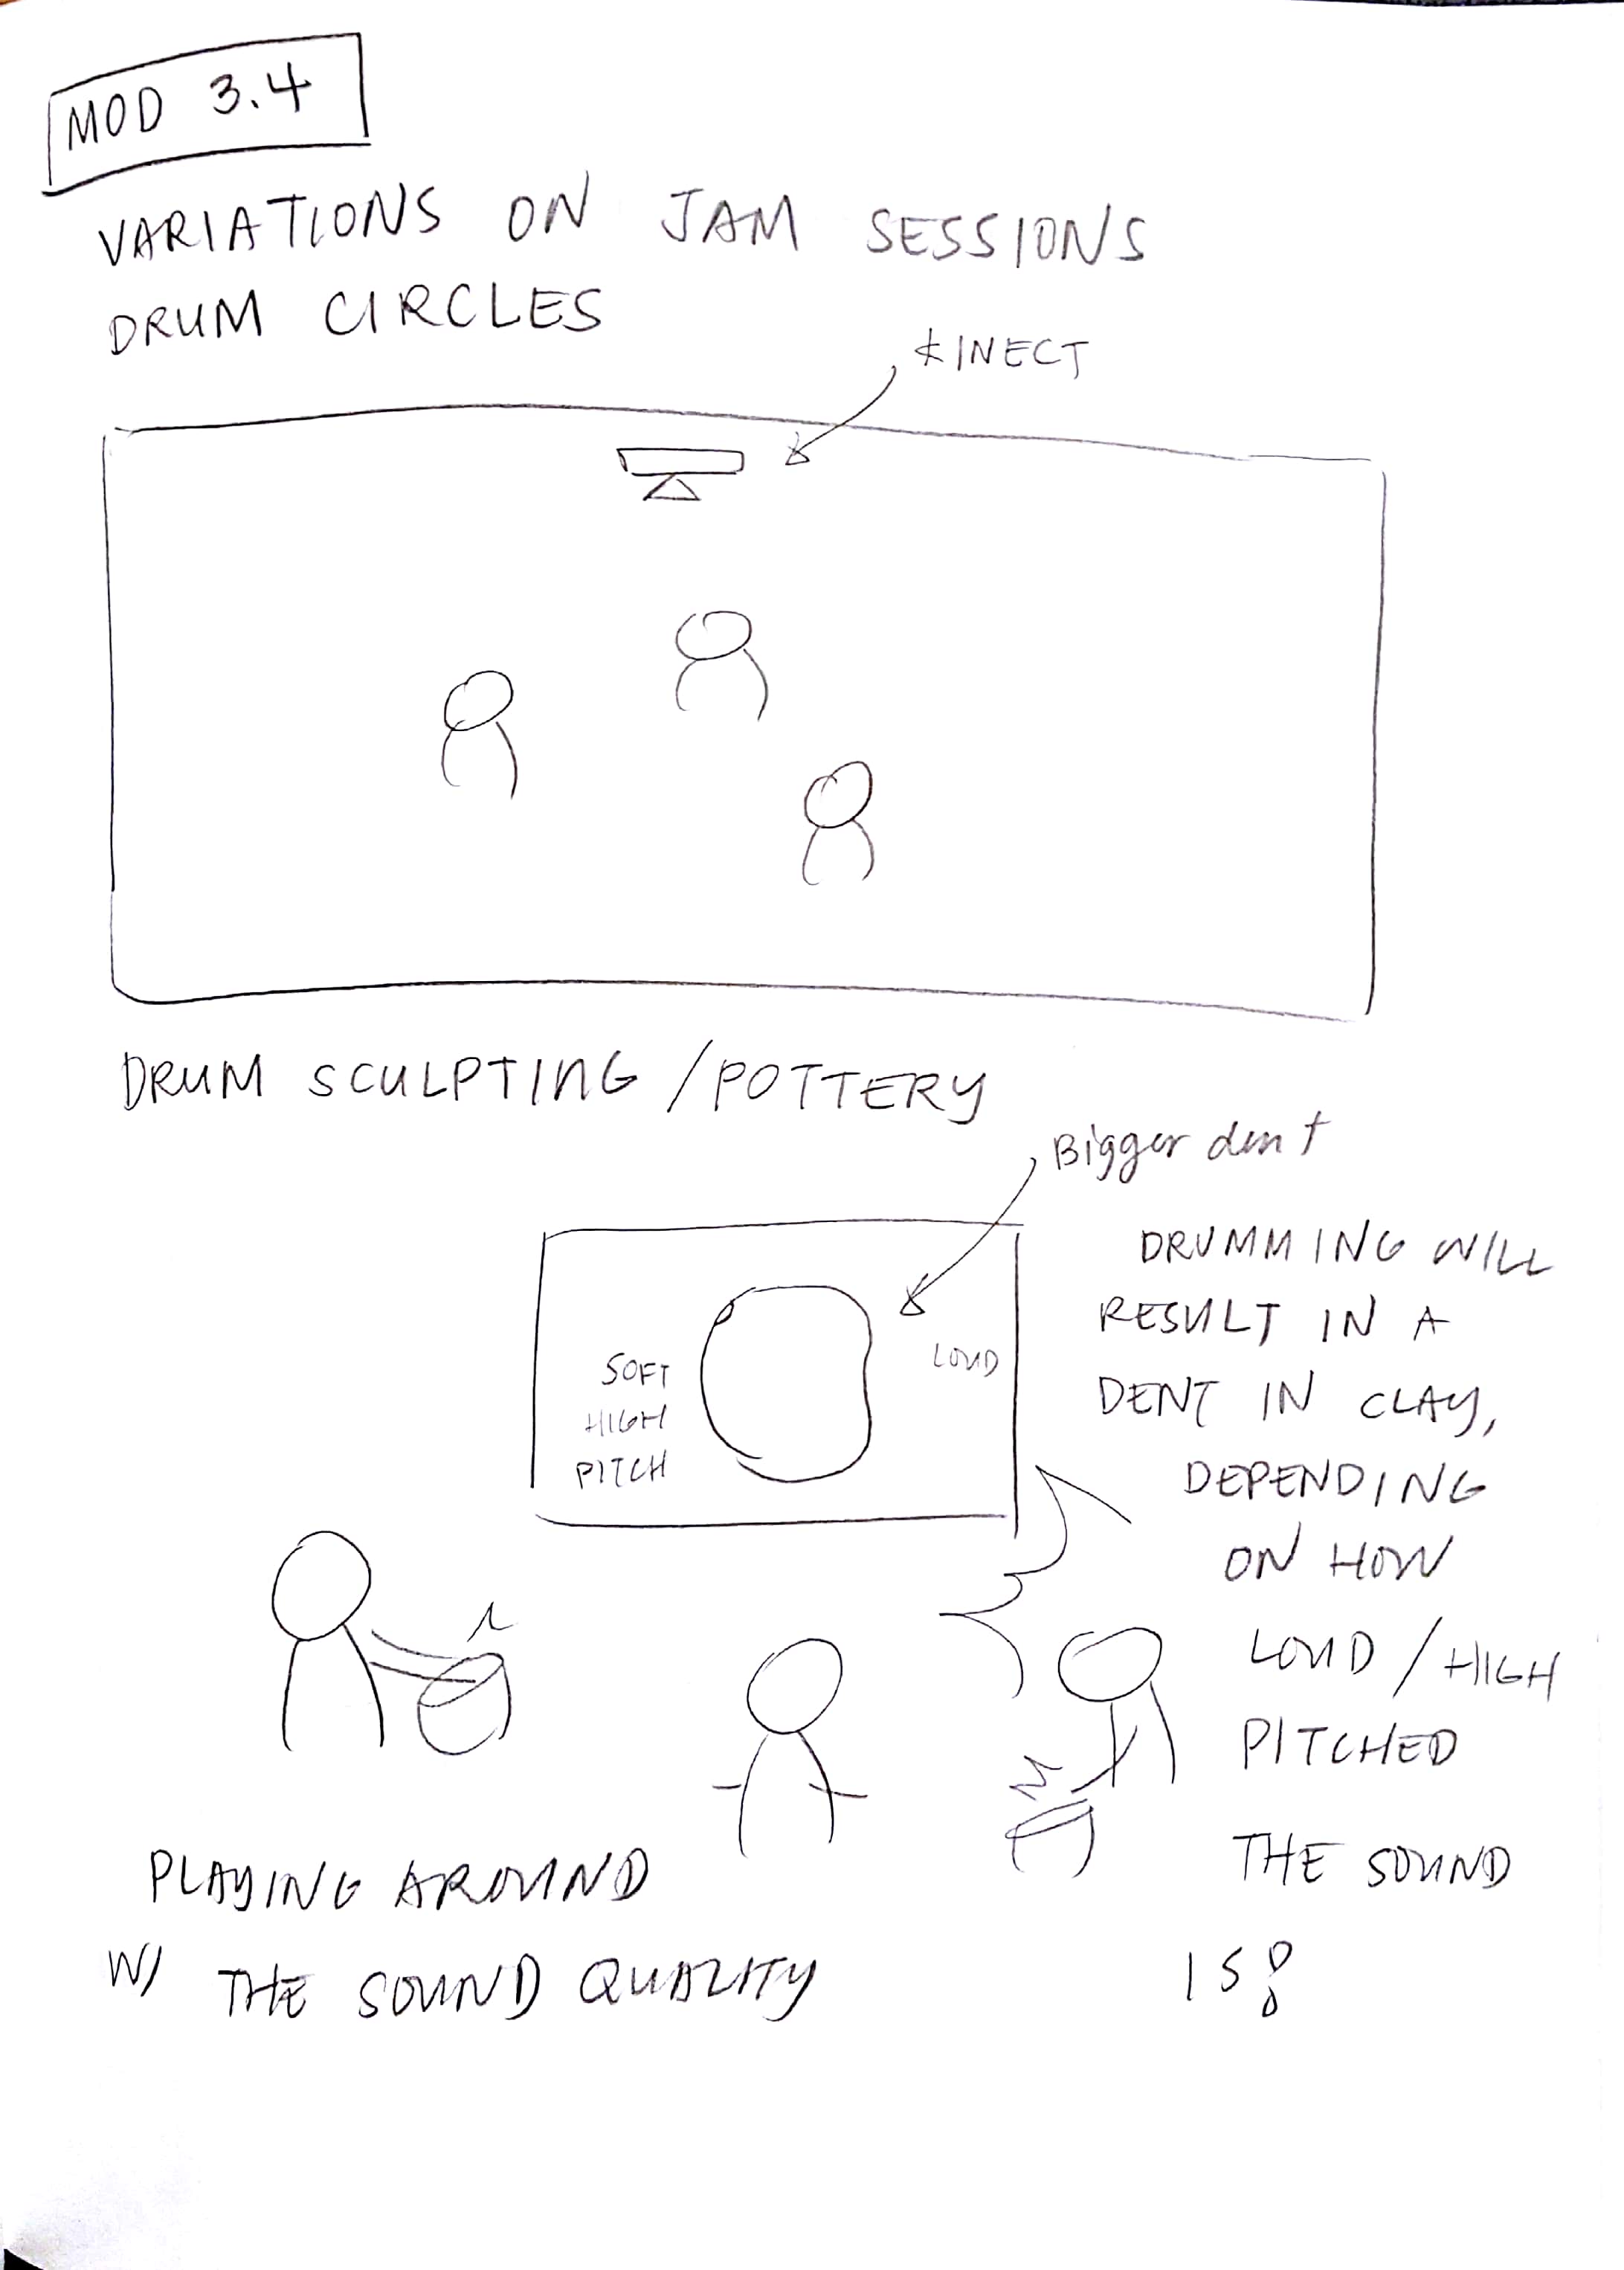 MOD 3.4
VARIATIONS ON JAM SESSIONS
DRUM CIRCLES
KINECT
DRUM SCULPTING / POTTERY
Bigger dent
SOFT
HIGH
PITCH
LOUD
DRUMMING WILL
RESULT IN A
DENT IN CLAY,
DEPENDING
ON HOW
LOUD / HIGH
PITCHED
THE SOUND
IS!
PLAYING AROUND
W/ THE SOUND QUALITY